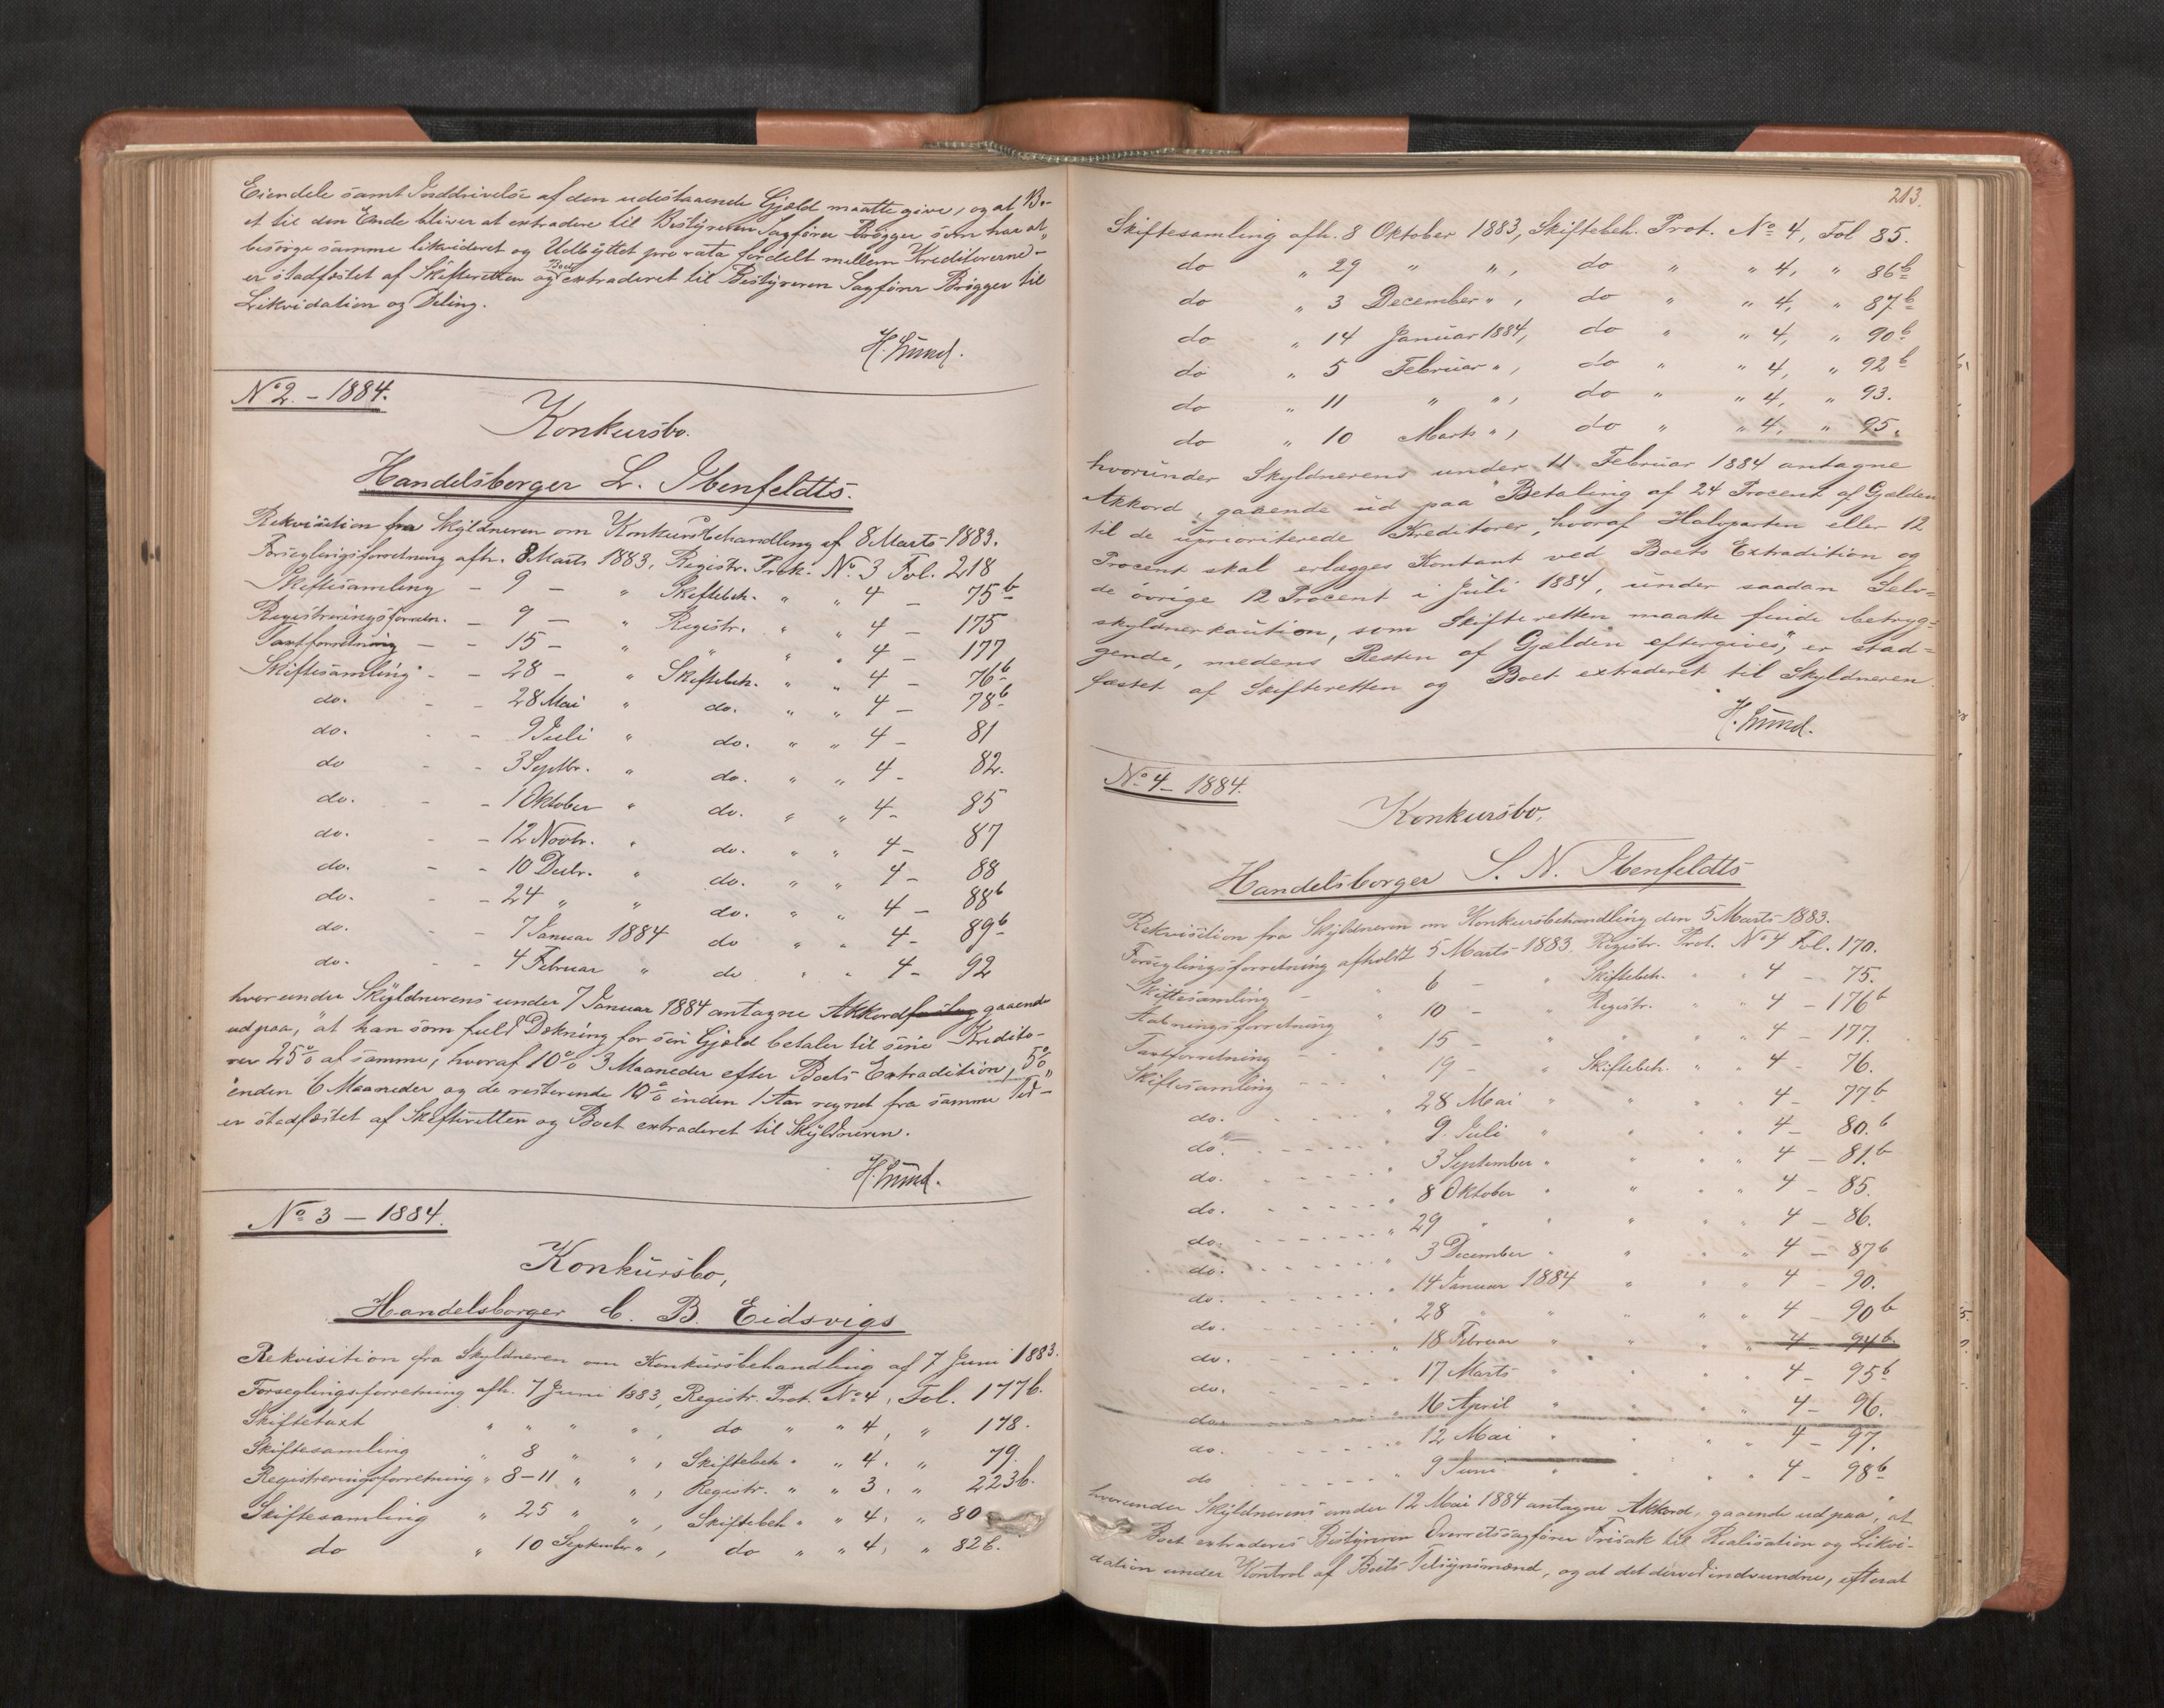 Eiendele samt Inddrivelse af den udestaaende Gjæld maatte give, og at Bo-
et til den Ende bliver at extradere til Bestyreren Sagfører Brøgger som har at
besørge samme likvideret og Udbyttet pro rata fordelt mellem Kreditorerne" -
er stadfæstet af Skifteretten og Boet extraderet til Bestyreren Sagfører Brøgger til
Likvidation og Deling.
H. Lund.
No 2. - 1884.
Konkursbo.
Handelsborger L. Ibenfeldts.
Rekvisition fra Skyldneren om Konkursbehandling af 8 Marts 1883.
Forseglingsforretning afh. 8 Marts 1883, Registr. Prot. No. 3 Fol. 218
Skiftesamling - 9 - " Skiftebeh. " " 4 - 75b
Registreringsforretn. - 9 - " Registr. " " 4 - 175
Taxtforretning - - 15 - " " " " 4 - 177
Skiftesamling - - 28 - " Skiftebeh. " " 4 - 76b
do. - - 28 Mai " do. " " 4 - 78b
do. - - 9 Juli " do. " " 4 - 81
do - - 3 Septbr. " do. " " 4 - 82.
do. - - 1 Oktober " do. " " 4 - 85
do. - - 12 Novbr. " do. " " 4 - 87
do. - - 10 Decbr. " do. " " 4 - 88
do. - - 24 " " do. " " 4 - 88b
do. - - 7 Januar 1884 do " " 4 - 89b
do. - - 4 Februar " do " " 4 - 92
hvorunder Skyldnerens under 7 Januar 1884 antagne Akkordforslag gaaende
ud paa, "at han som fuld Dækning for sin Gjæld betaler til sine Kredito-
rer 25% af samme, hvoraf 10% 3 Maaneder efter Boets Extradition, 5%
inden 6 Maaneder og de resterende 10% inden 1 Aar regnet fra samme Tid" -
er stadfæstet af Skifteretten og Boet extraderet til Skyldneren.
H. Lund.
No 3 - 1884.
Konkursbo,
Handelsborger C. B. Eidsvigs
Rekvisition fra Skyldneren om Konkursbehandling af 7 Juni 1883.
Forseglingsforretning afh. 7 Juni 1883, Registr. Prot. No 4, Fol. 177b.
Skiftetaxt " " " " , do " " 4, " 178.
Skiftesamling " 8 " " , Skiftebeh " " 4. " 79.
Registreringsforretning " 8-11 " " , Registr. " " 3. " 223b.
Skiftesamling " 25 " " , Skiftebeh " " 4. " 80
do " 10 September ", do " " 4. " 82b.
213.
Skiftesamling afh. 8 Oktober 1883, Skiftebeh. Prot. No 4, Fol 85.
do " 29 " ", do " " 4, " 86b
do " 3 December ", do " " 4, " 87b
do " 14 Januar 1884, do " " 4, " 90b
do " 5 Februar ", do " " 4, " 92b
do " 11 " ", do " " 4, " 93.
do " 10 Marts ", do " " 4, " 95.
hvorunder Skyldnerens under 11 Februar 1884 antagne
Akkord, gaaende ud paa "Betaling af 24 Procent af Gjælden
til de uprioriterede Kreditorer, hvoraf Halvparten eller 12
Procent skal erlægges Kontant ved Boets Extradition og
de øvrige 12 Procent i Juli 1884, under saadan Selv=
skyldnerkaution, som Skifteretten maatte finde betryg=
gende, medens Resten af Gjælden eftergives", er stad=
fæstet af Skifteretten og Boet extraderet til Skyldneren.
H. Lund.
No 4 - 1884.
Konkursbo,
Handelsborger S. N. Ibenfeldts
Rekvisition fra Skyldneren om Konkursbehandling den 5 Marts 1883.
Forseglingsforretning afholdt 5 Marts 1883. Registr. Prot. No 4 Fol. 170.
Skiftesamling - " 6 - " Skiftebeh. " " 4 - 75.
" 10 - " Registr. " " 4 - 176b
Taxtforretning - - " 15 - " " " " 4 - 177.
Skiftesamling - - - " 19 - " Skiftebeh. " " 4 - 76.
do. " 28 Mai " " " " 4 - 77b
do. " 9. Juli " " " " 4 - 80.b
do. " 3 September " " " " 4 - 81.b
do. " 8 Oktober " " " " 4 - 85.
do. " 29 " " " " " 4 - 86.
do. " 3 December " " " " 4 - 87b
do. " 14 Januar 1884 " " " 4 - 90.
do. " 28 " " " " " 4 - 90b
do. " 18 Februar " " " " 4 - 94b.
do. " 17 Marts " " " " 4 - 95b
do. " 16 April " " " " 4 - 96.
do. " 12 Mai " " " " 4 - 97.
do " 9 Juni " " " " 4 - 98b
hvorunder Skyldnerens under 12 Mai 1884 antagne Akkord, gaaende ud paa, "at
Boet extraderes Bestyreren Overretssagfører Frisak til Realisation og Likvi-
dation under Kontrol af Boets Tilsynsmænd, og at det derved indvundne, efterat